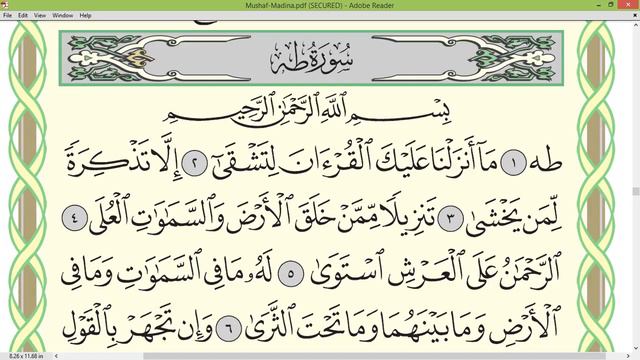 Mushaf-Madina.pdf (SECURED) - Adobe Reader
File Edit View Window Help
سُورَةُ طه
بِسْمِ ٱللَّهِ ٱلرَّحْمَٰنِ ٱلرَّحِيمِ
طه ١ مَآ أَنزَلْنَا عَلَيْكَ ٱلْقُرْءَانَ لِتَشْقَىٰٓ ٢ إِلَّا تَذْكِرَةً
لِّمَن يَخْشَىٰ ٣ تَنزِيلًا مِّمَّنْ خَلَقَ ٱلْأَرْضَ وَٱلسَّمَٰوَٰتِ ٱلْعُلَى ٤
ٱلرَّحْمَٰنُ عَلَى ٱلْعَرْشِ ٱسْتَوَىٰ ٥ لَهُۥ مَا فِى ٱلسَّمَٰوَٰتِ وَمَا فِى
ٱلْأَرْضِ وَمَا بَيْنَهُمَا وَمَا تَحْتَ ٱلثَّرَىٰ ٦ وَإِن تَجْهَرْ بِٱلْقَوْلِ
8.26 x 11.68 in